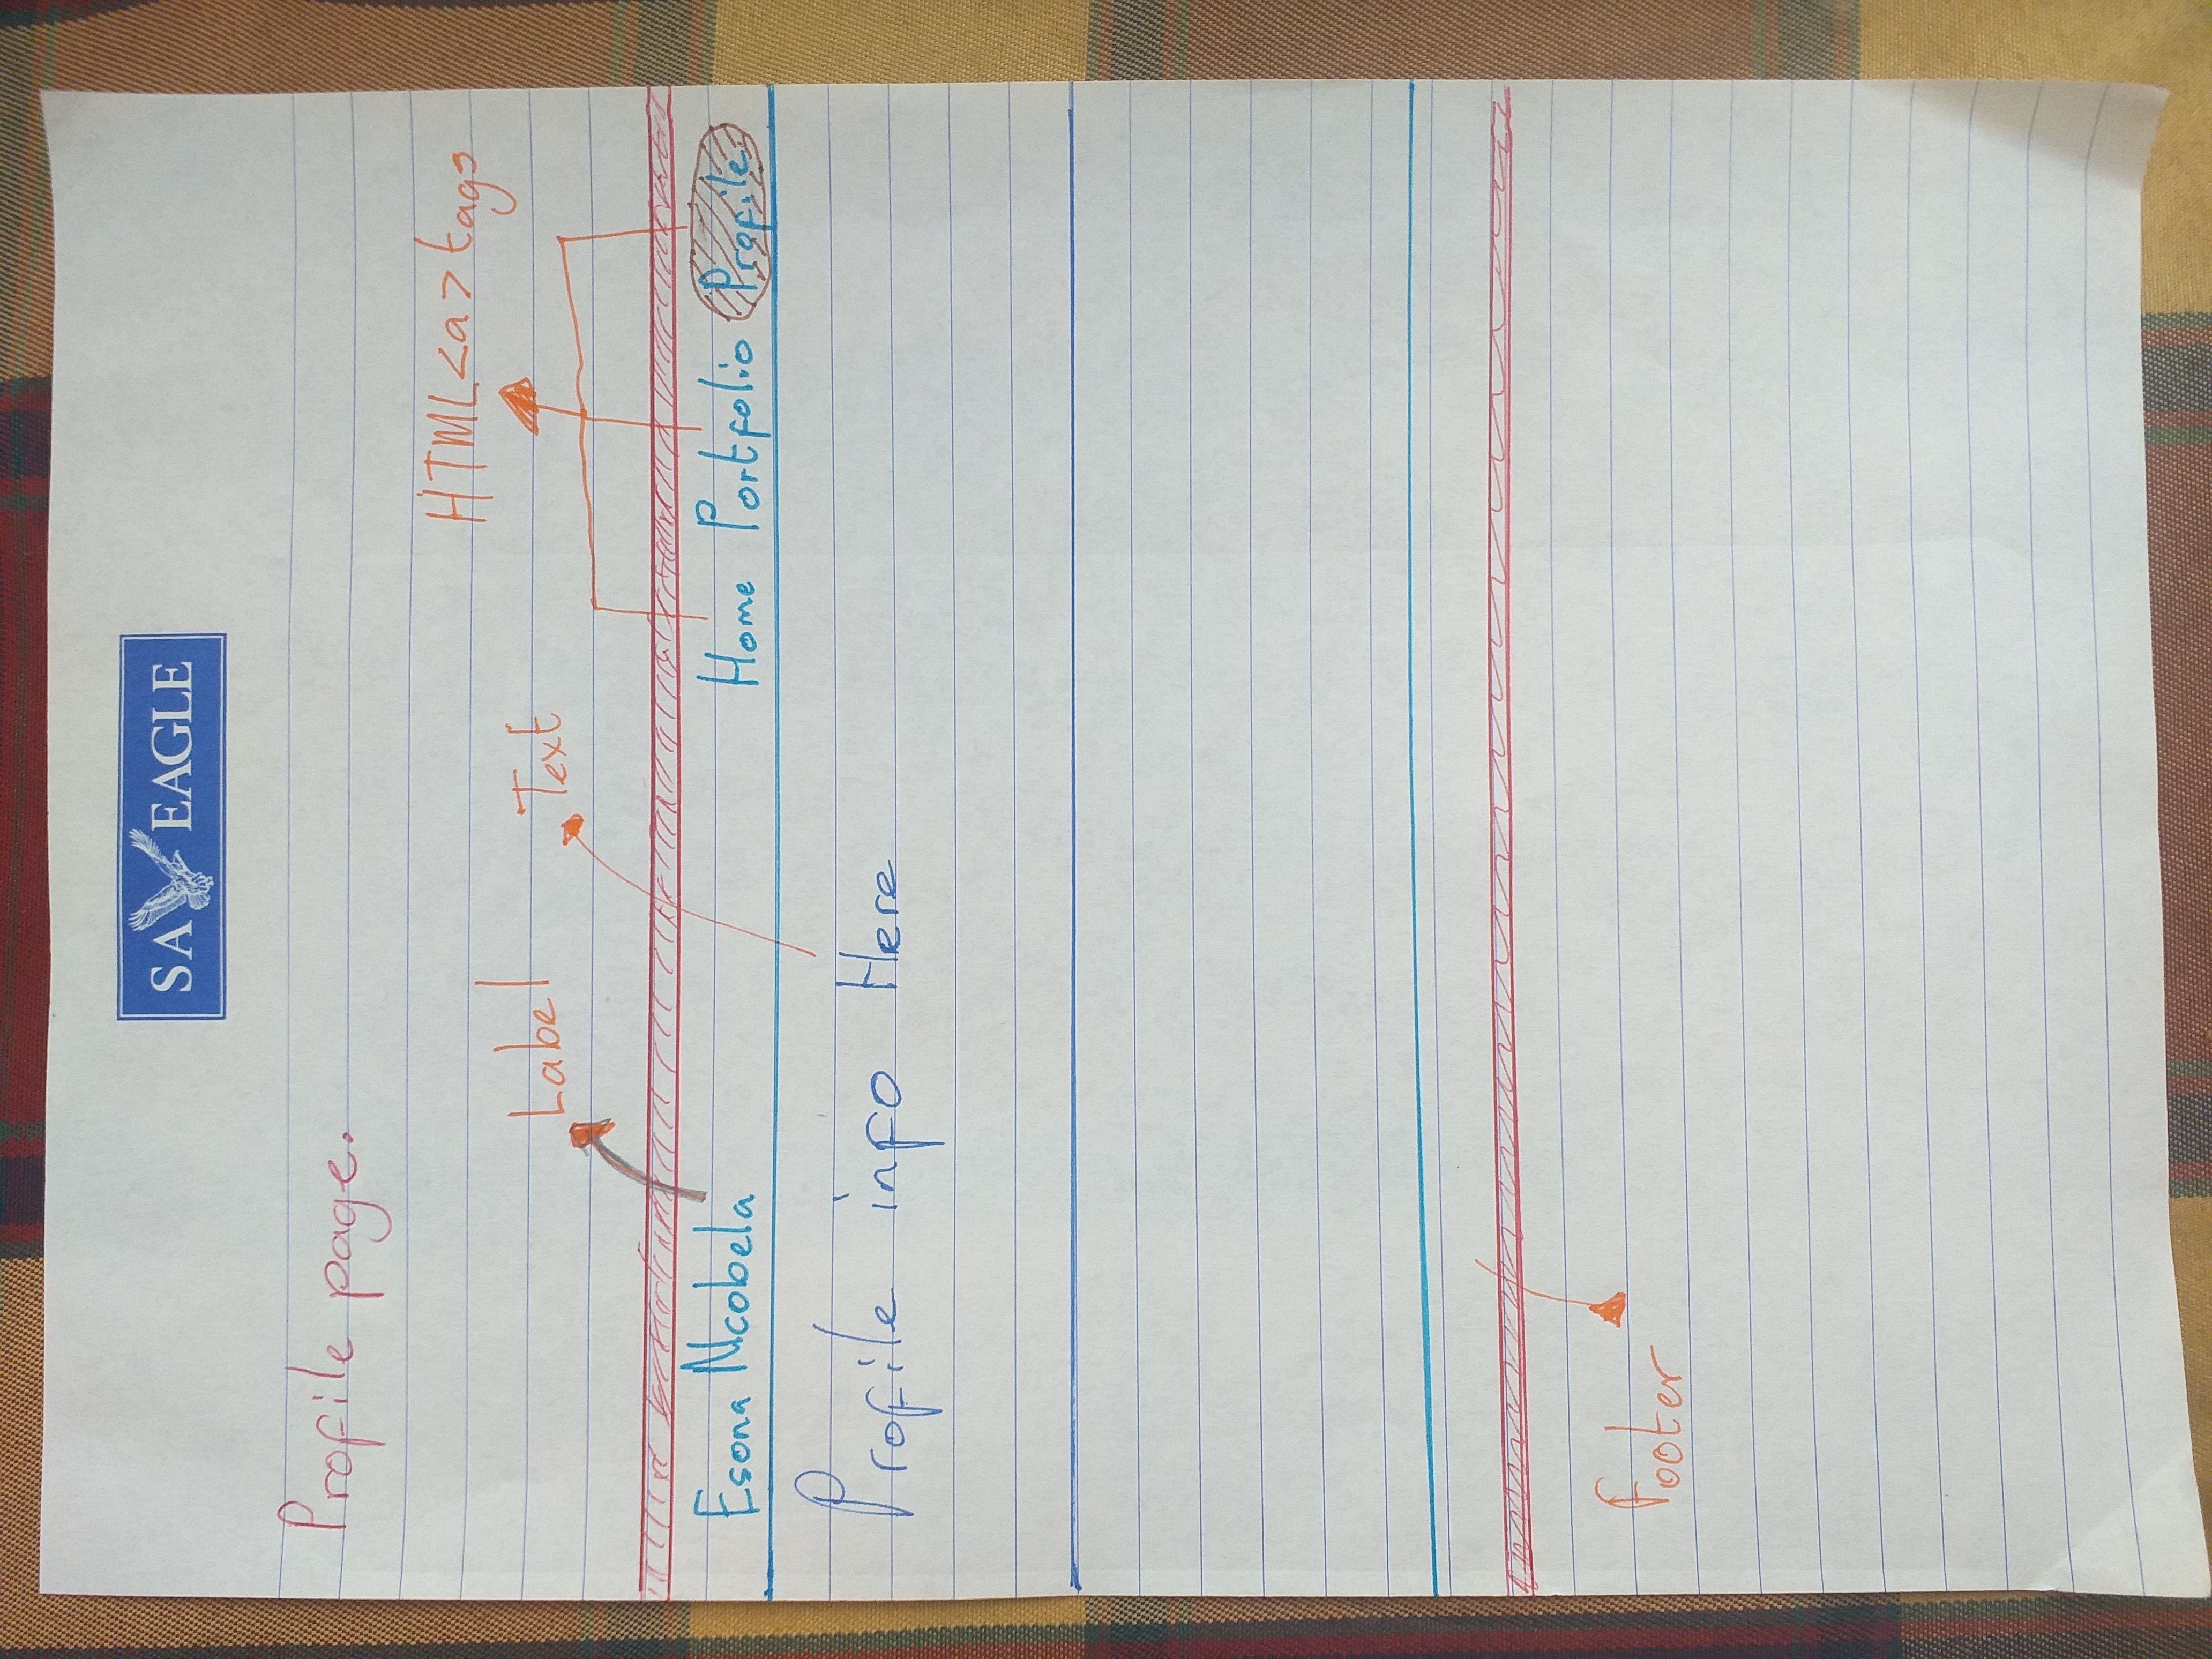 SA EAGLE
Profile page.
HTML <a> tags
Label Text
Esona Ncobela Home Portfolio Profile
Profile info Here
Footer